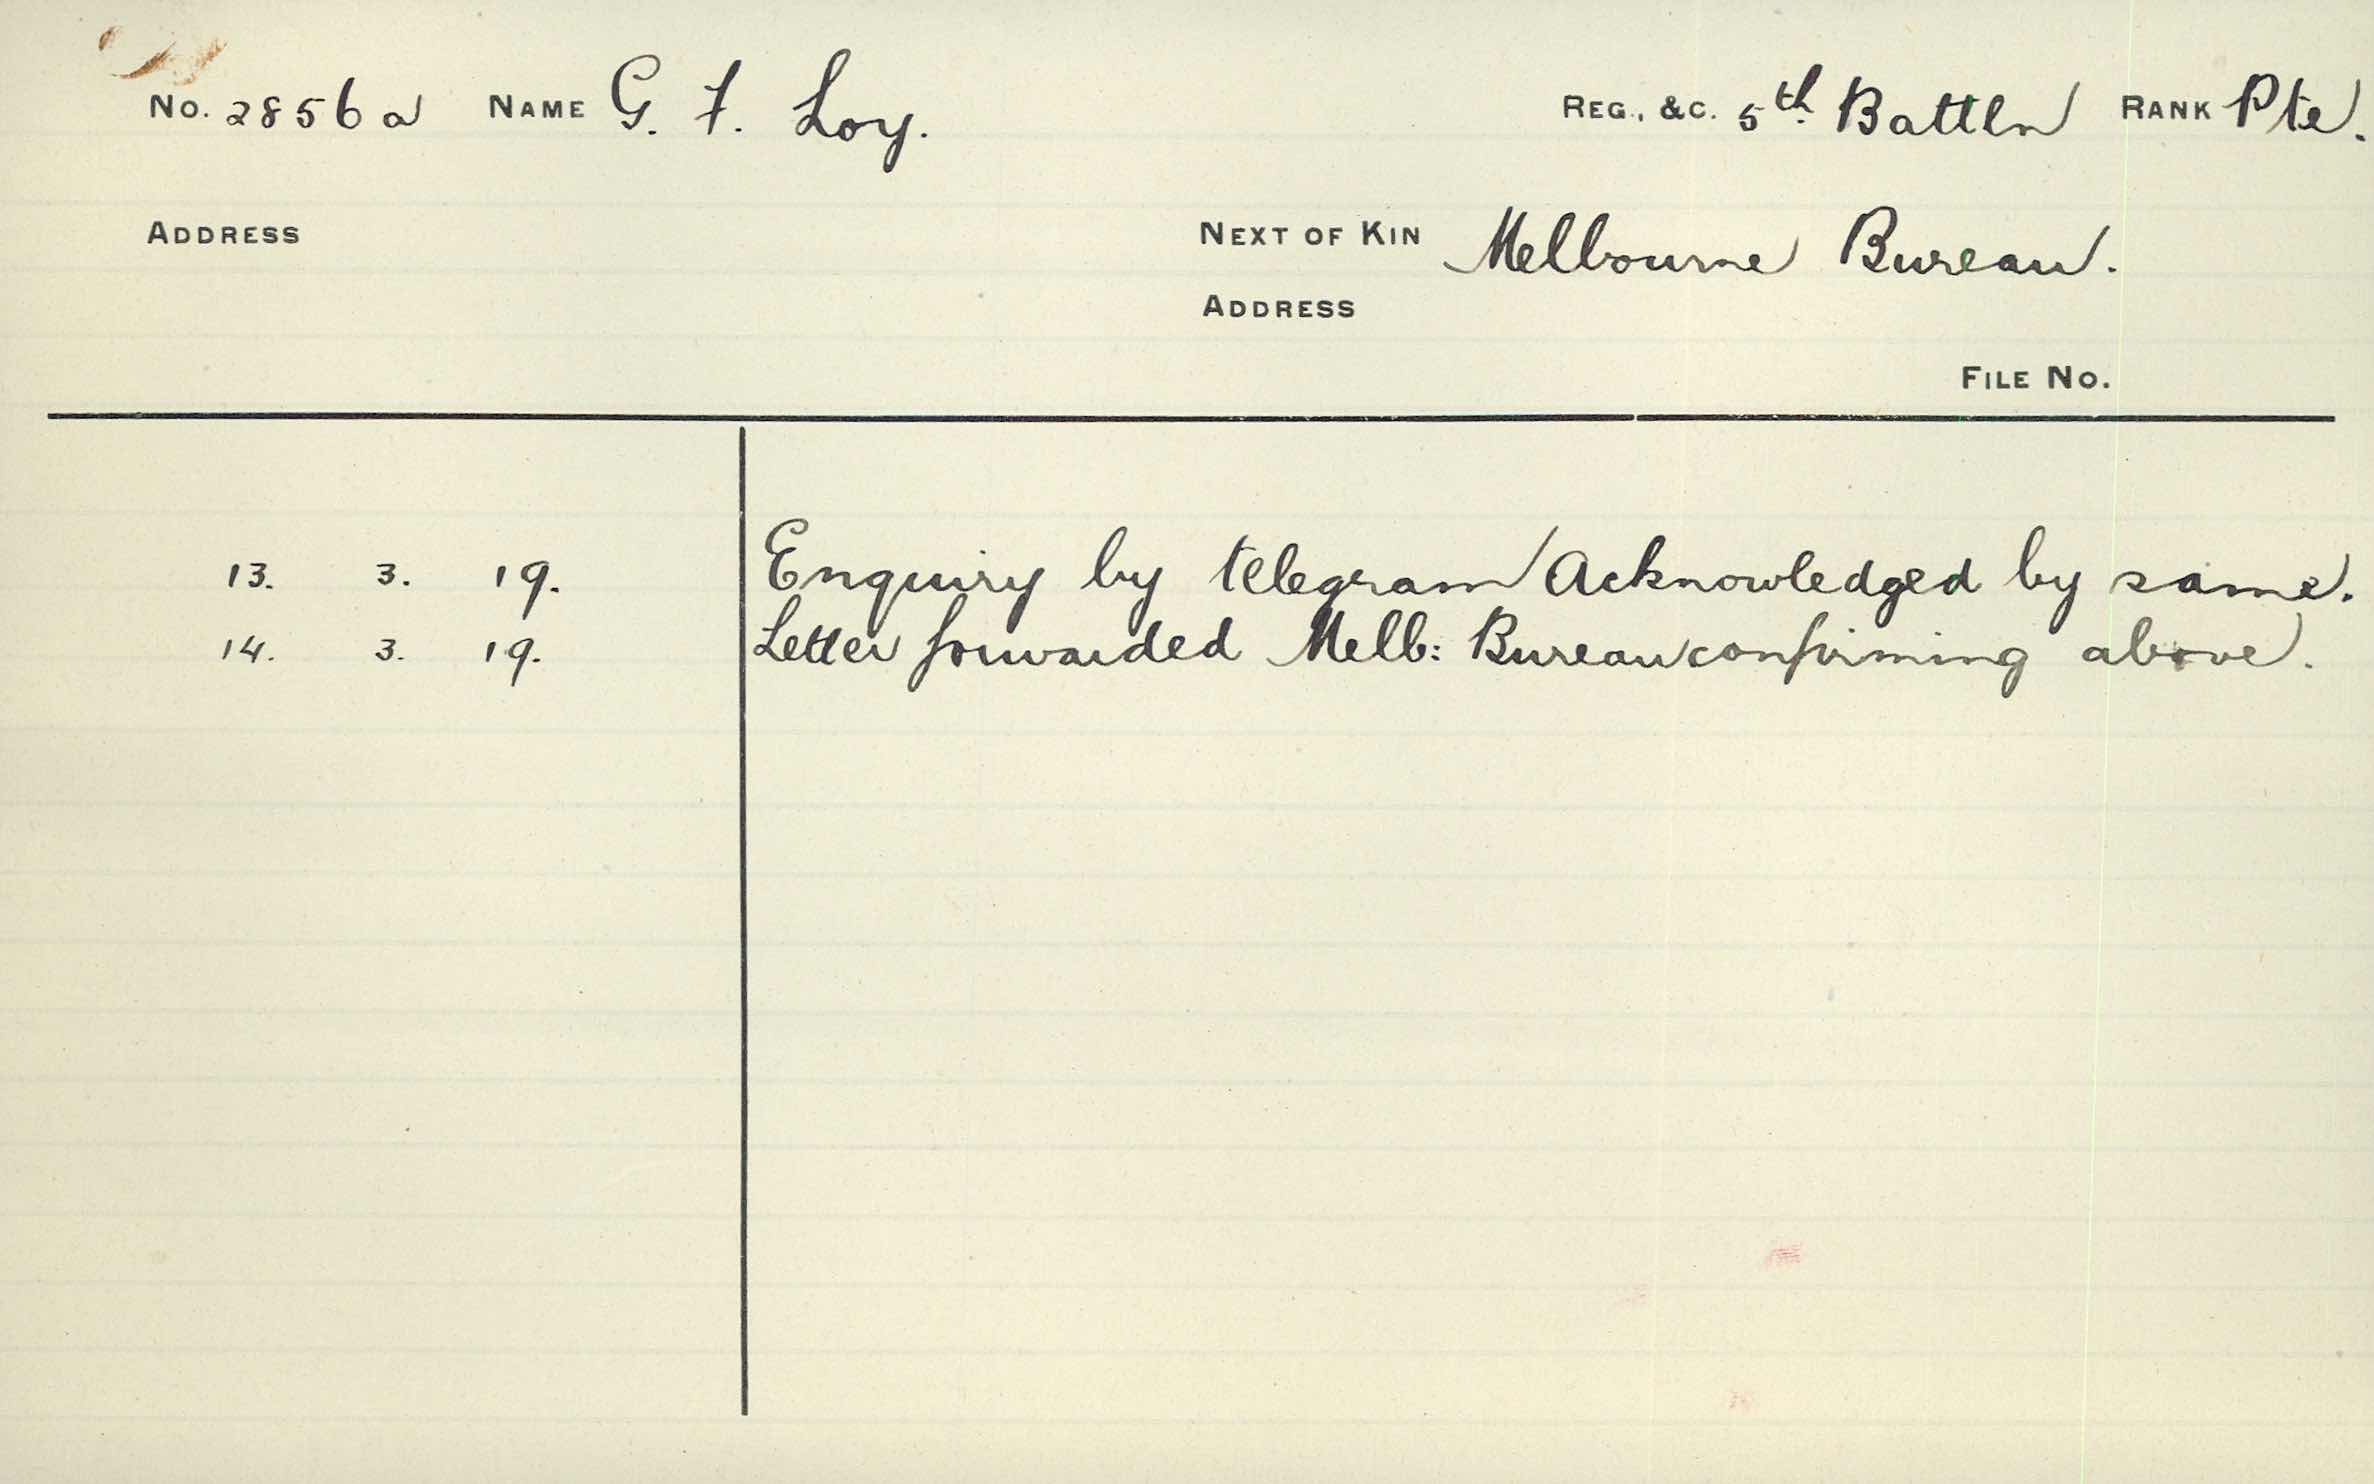 No. 2856a NAME G. F. Loy. REG., &C. 5th. Battln RANK Pte.
ADDRESS NEXT OF KIN Melbourne Bureau.
ADDRESS
FILE NO.
13. 3. 19. Enquiry by telegram Acknowledged by same.
14. 3. 19. Letter forwarded Melb: Bureau confirming above.